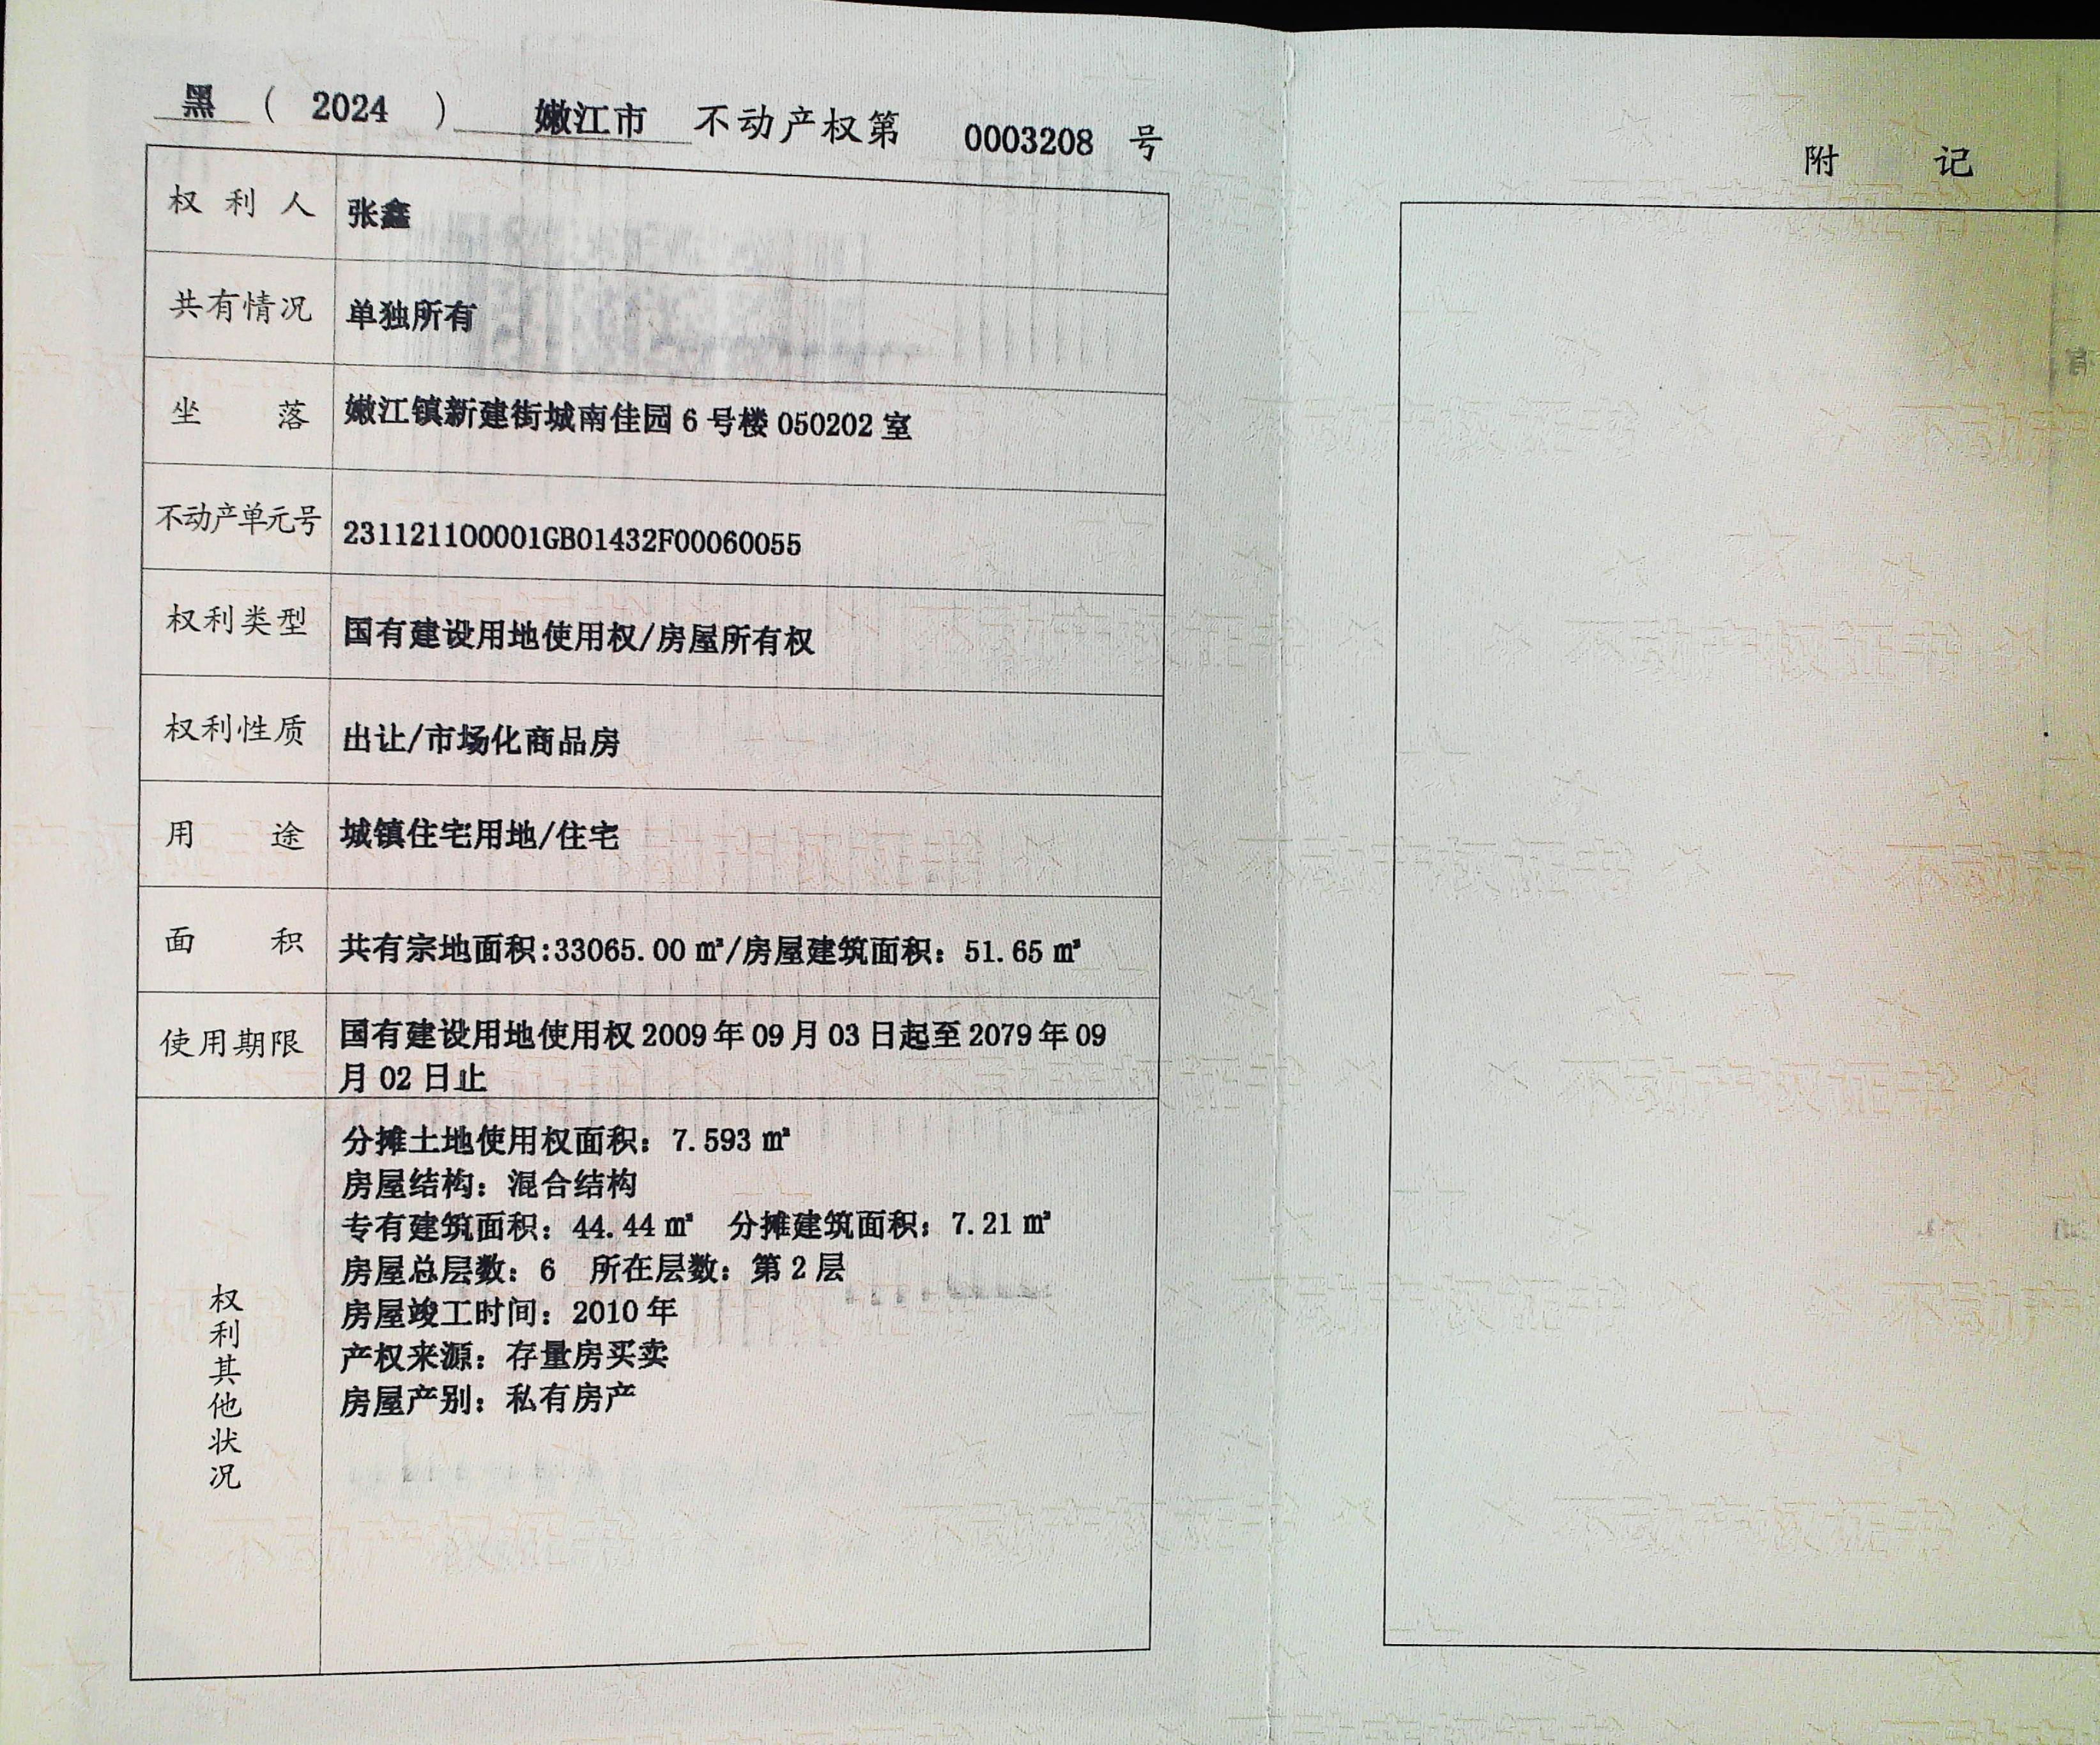 黑 ( 2024 ) 嫩江市 不动产权第 0003208 号
权利人 张鑫
共有情况 单独所有
坐落 嫩江镇新建街城南佳园 6 号楼 050202 室
不动产单元号 231121100001GB01432F00060055
权利类型 国有建设用地使用权/房屋所有权
权利性质 出让/市场化商品房
用途 城镇住宅用地/住宅
面积 共有宗地面积:33065.00 ㎡/房屋建筑面积：51.65 ㎡
使用期限 国有建设用地使用权 2009 年 09 月 03 日起至 2079 年 09
月 02 日止
权利其他状况
分摊土地使用权面积：7.593 ㎡
房屋结构：混合结构
专有建筑面积：44.44 ㎡ 分摊建筑面积：7.21 ㎡
房屋总层数：6 所在层数：第 2 层
房屋竣工时间：2010 年
产权来源：存量房买卖
房屋产别：私有房产
附记